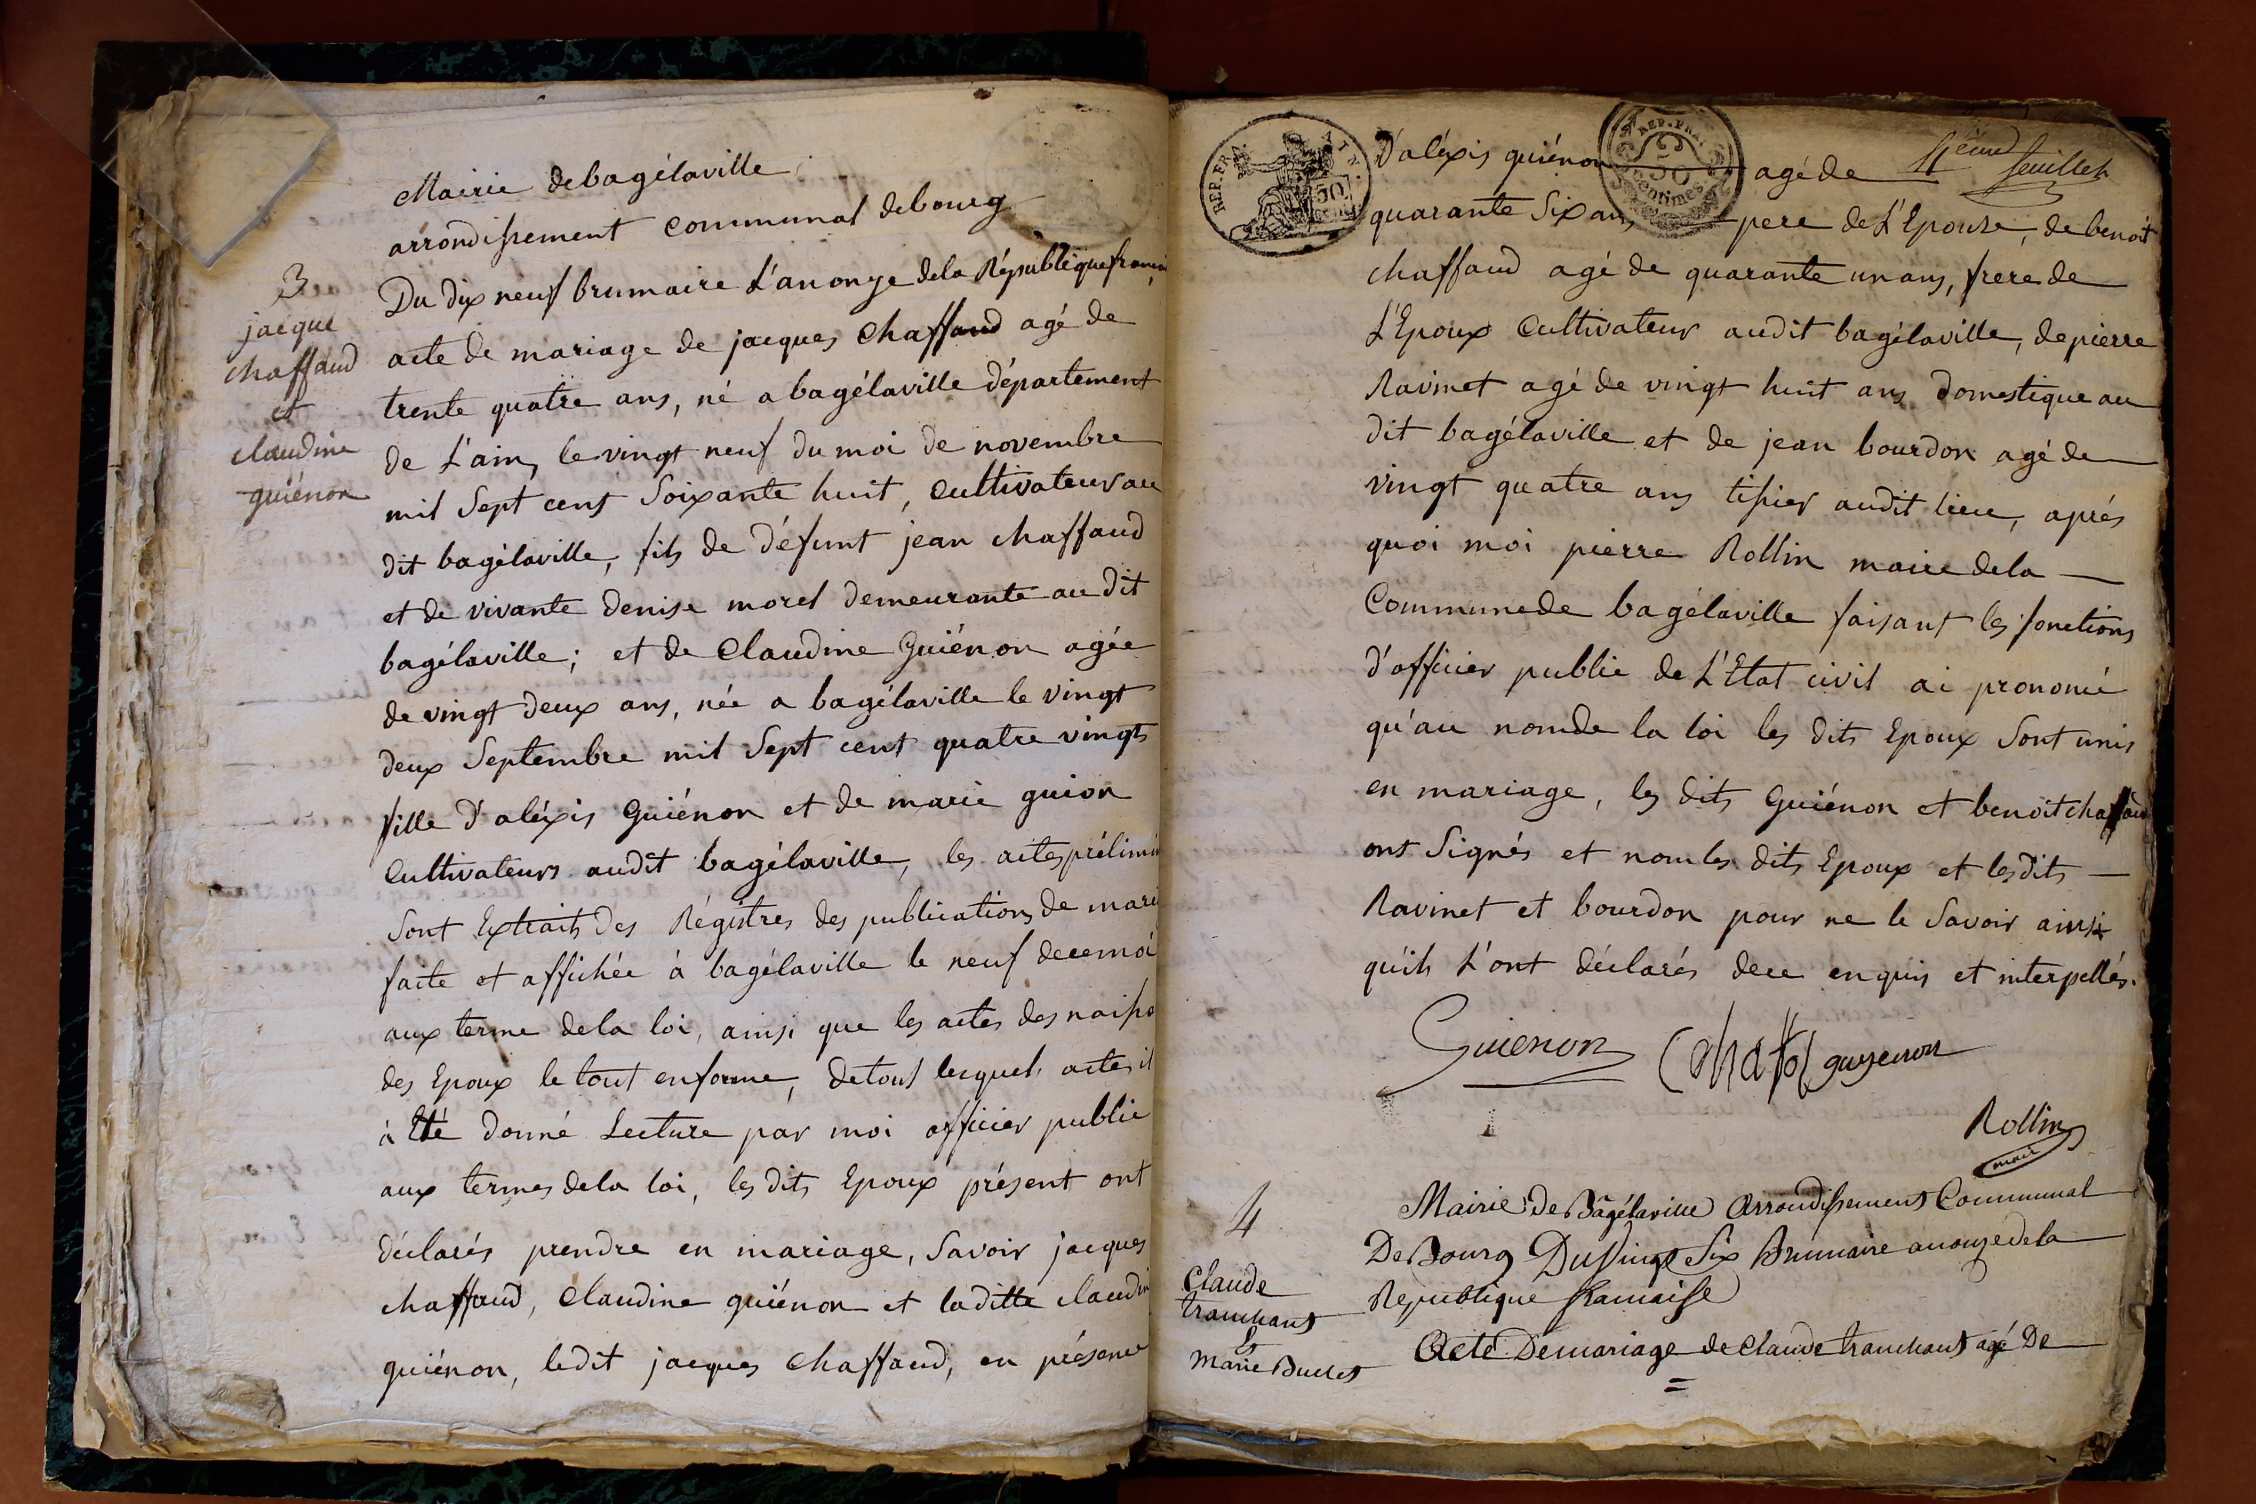 Mairie de bagélaville
arrondissement communal de bourg
3
jacque
chaffaud
et
claudine
guiénon
Du dix neuf brumaire L'an onze de la République françai
acte de mariage de jacques Chaffaud agé de
trente quatre ans, né a bagélaville département
de L'ain, le vingt neuf du moi de novembre
mil Sept cent Soixante huit, Cultivateur au
dit bagélaville, fils de défunt jean chaffaud
et de vivante denise morel demeurante au dit
bagélaville; et de Claudine Guiénon agée
de vingt deux ans, née a bagélaville le vingt
deux Septembre mil Sept cent quatre vingts
fille d'aléxis Guiénon et de marie guion
Cultivateurs audit bagélaville, les actes prélimin
Sont Extraits des Régistres des publications de mari
faite et affichée à bagélaville le neuf de ce moi
aux terme de la loi, ainsi que les actes des naissa
des Epoux le tout en forme, de tout lesquels actes il
à Eté donné Lecture par moi officier public
aux termes de la loi, les dits Epoux présent ont
déclarés prendre en mariage, Savoir jacques
chaffaud, Claudine guiénon et la ditte claudin
guiénon, le dit jacques Chaffaud, en présence
REP. FRA.
50
REP. FRA.
50
centimes
feuillet
D'aléxis guiénon agé de
quarante Six ans pere de L'Epouse, de benoit
chaffaud agé de quarante un ans, frere de
L'Epoux Cultivateur audit bagélaville, de pierre
Ravinet agé de vingt huit ans domestique au
dit bagélaville et de jean bourdon agé de
vingt quatre ans tissier audit lieu, aprés
quoi moi pierre Rollin maire de la
Commune de bagélaville faisant les fonctions
d'officier public de L'Etat civil ai prononcé
qu'au nom de la loi les dits Epoux Sont unis
en mariage, les dits Guiénon et benoit chaffaud
ont Signés et nom les dits Epoux et les dits
Ravinet et bourdon pour ne le Savoir ainsi
qu'ils L'ont déclarés de ce enquis et interpellés.
Guienon Chaffo guyenon
Rollin
maire
4
Claude
tranchant
Et
Marie Buclet
Mairie de Bâgélaville Arrondissement Communal
De Bourg Du Vingt Six Brumaire an onze de la
Republique française
Acte De mariage de Claude tranchant agé De